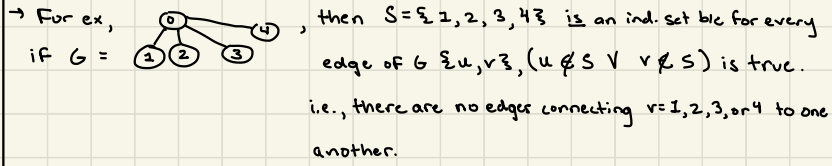 → For ex, 0 4 , then S = { 1, 2, 3, 4 } is an ind. set b/c for every
if G = 1 2 3 edge of G {u, v}, (u ∉ S ∨ v ∉ S) is true.
i.e., there are no edges connecting v = 1, 2, 3, or 4 to one
another.